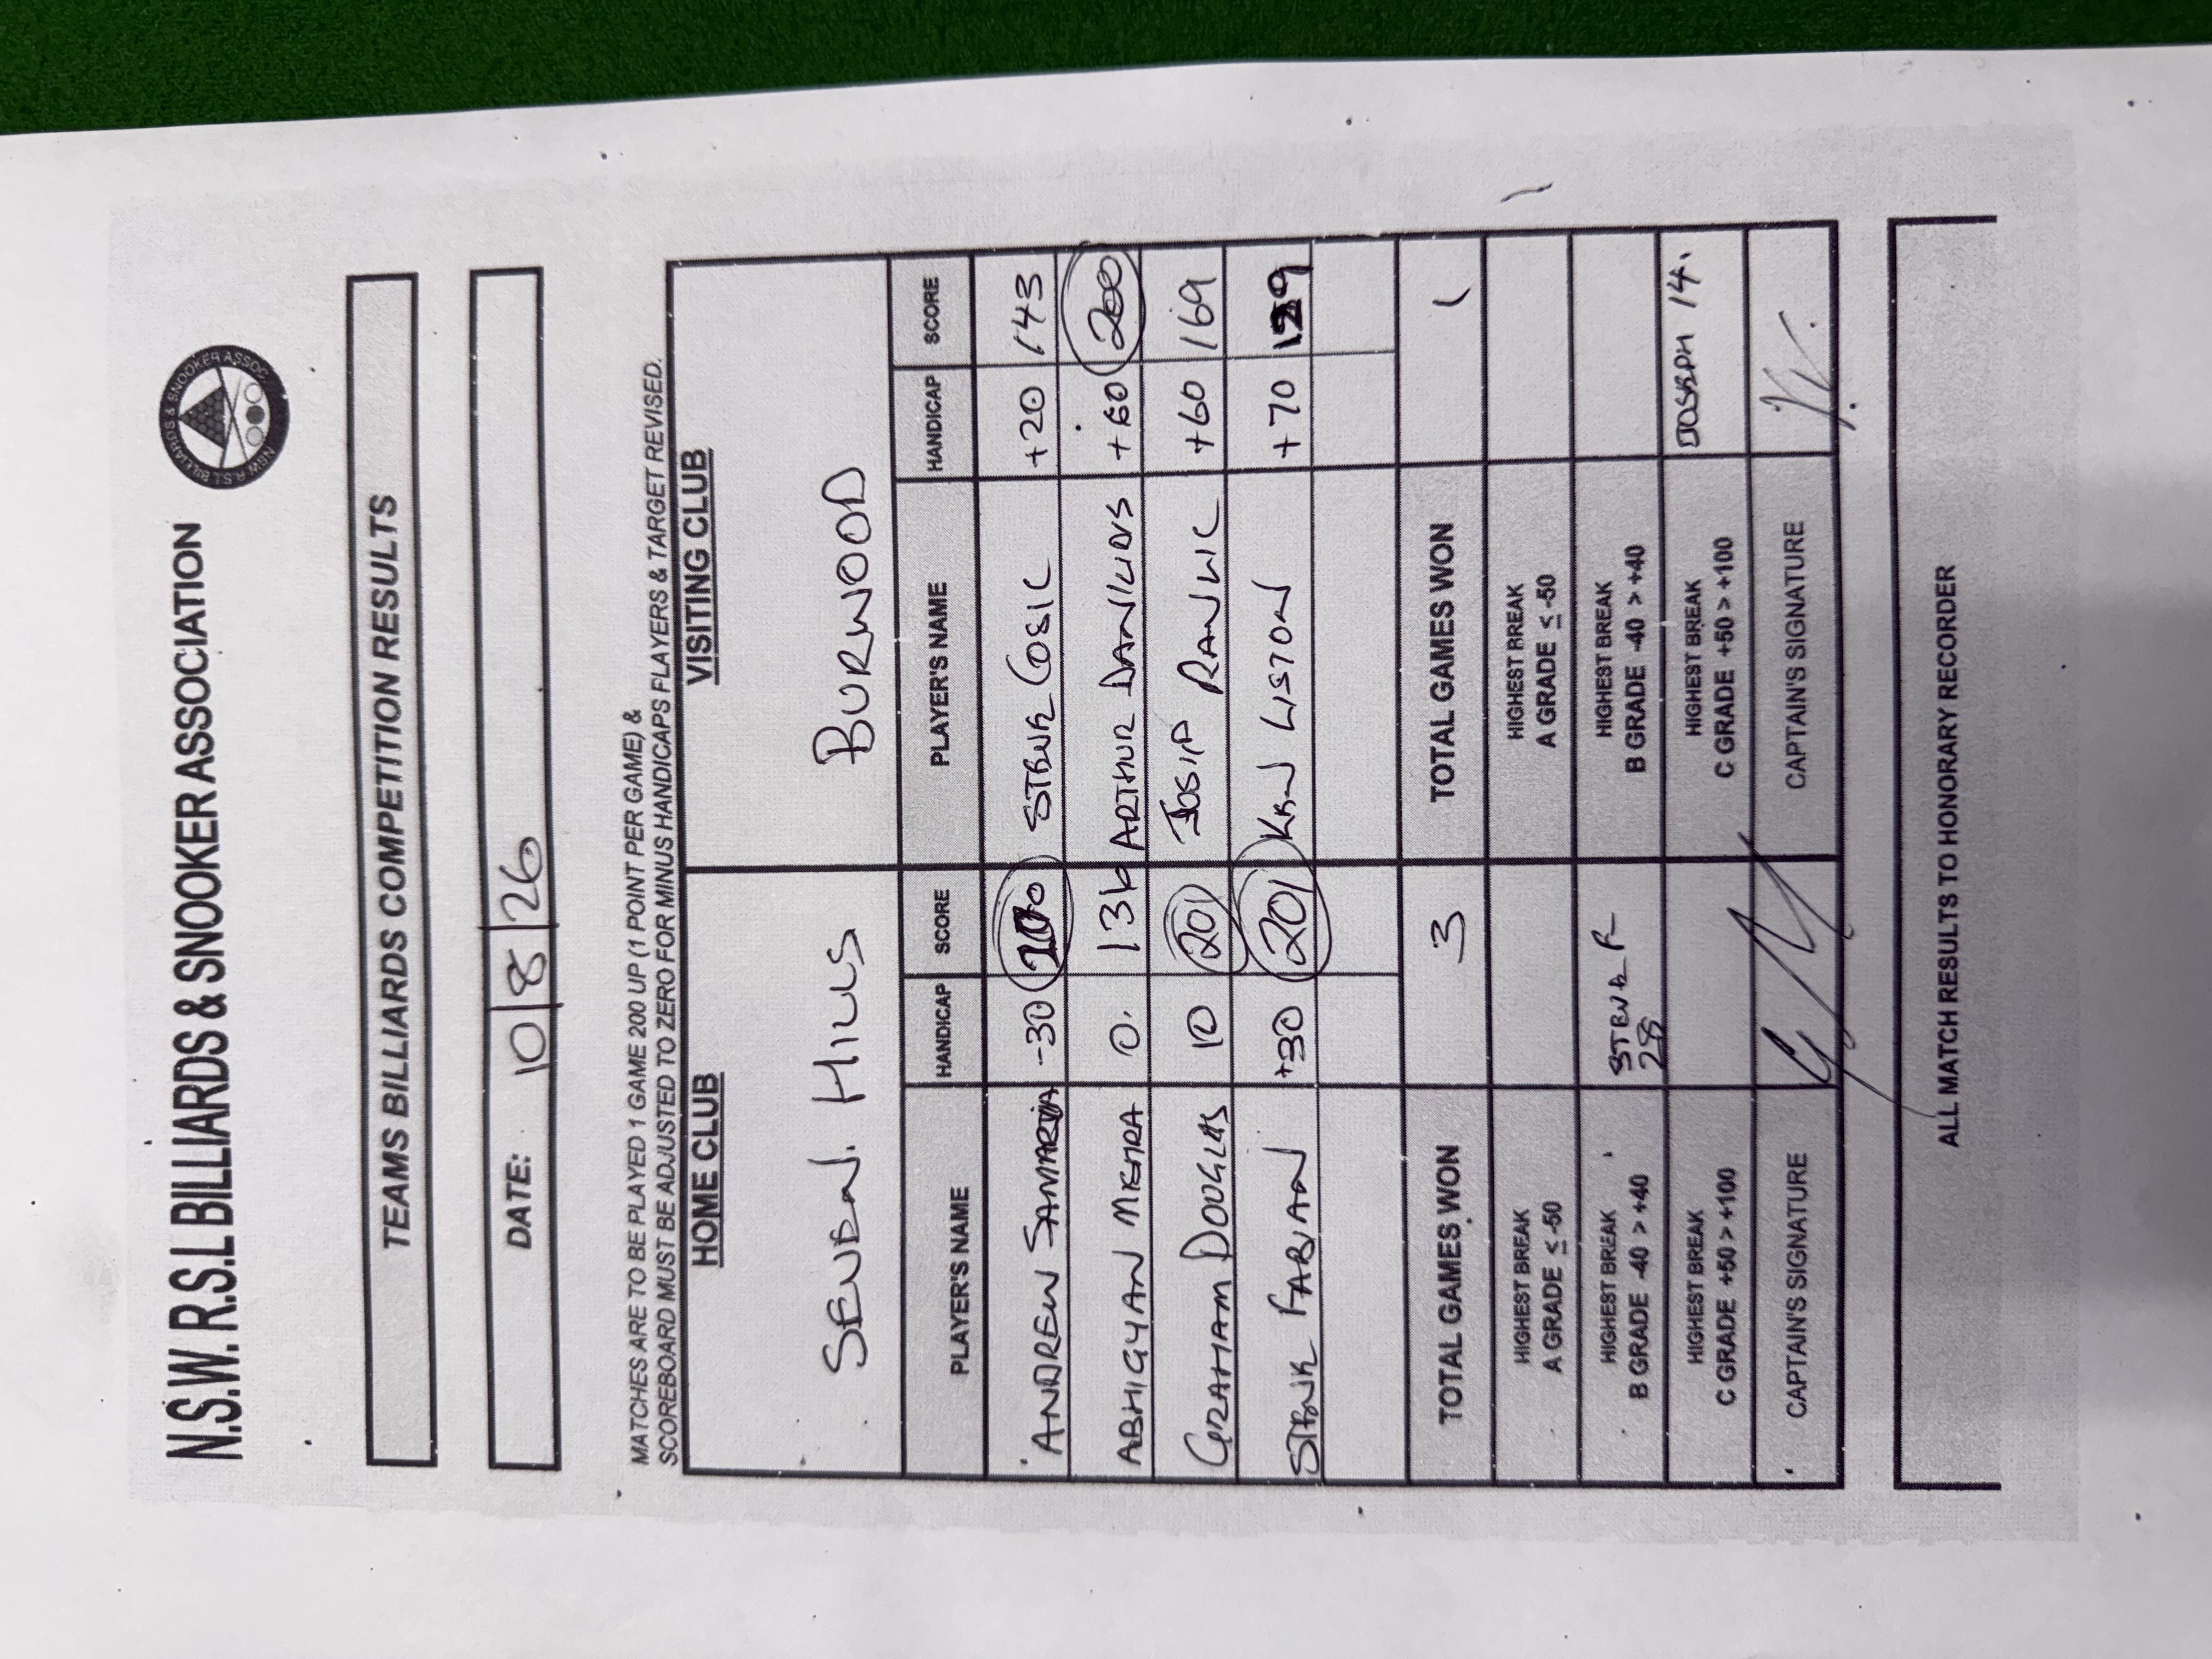 N.S.W. R.S.L BILLIARDS & SNOOKER ASSOCIATION
NSW R.S.L BILLIARDS & SNOOKER ASSOC
TEAMS BILLIARDS COMPETITION RESULTS
DATE: 10/8/26
MATCHES ARE TO BE PLAYED 1 GAME 200 UP (1 POINT PER GAME) &
SCOREBOARD MUST BE ADJUSTED TO ZERO FOR MINUS HANDICAPS PLAYERS & TARGET REVISED.
HOME CLUB VISITING CLUB
SEVEN. HILLS BURWOOD
PLAYER'S NAME HANDICAP SCORE PLAYER'S NAME HANDICAP SCORE
ANDREW -30 STEVE COSIC +20 143
ABHIGYAN MISHRA 0. 136 ARTHUR +60 200
GRAHAM DOUGLAS 10 201 JOSIP +60 169
STEVE FABIAN +30 201 KEN LISTON +70
TOTAL GAMES WON 3 TOTAL GAMES WON 1
HIGHEST BREAK HIGHEST BREAK
A GRADE ≤ -50 A GRADE ≤ -50
HIGHEST BREAK STEVE F HIGHEST BREAK
B GRADE -40 > +40 28 B GRADE -40 > +40
HIGHEST BREAK HIGHEST BREAK JOSEPH 14.
C GRADE +50 > +100 C GRADE +50 > +100
CAPTAIN'S SIGNATURE CAPTAIN'S SIGNATURE
ALL MATCH RESULTS TO HONORARY RECORDER